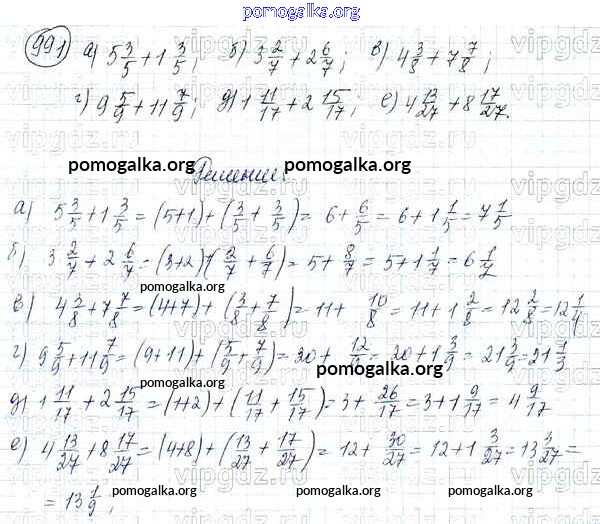 pomogalka.org
991) а) 5 3/5 + 1 3/5; б) 3 2/7 + 2 6/7; в) 4 3/8 + 7 7/8;
г) 9 5/9 + 11 7/9; д) 1 11/17 + 2 15/17; е) 4 13/27 + 8 17/27.
pomogalka.org Решение: pomogalka.org
а) 5 3/5 + 1 3/5 = (5+1) + (3/5 + 3/5) = 6 + 6/5 = 6 + 1 1/5 = 7 1/5
б) 3 2/7 + 2 6/7 = (3+2)+(2/7 + 6/7) = 5 + 8/7 = 5 + 1 1/7 = 6 1/7
в) 4 3/8 + 7 7/8 = (4+7) + (3/8 + 7/8) = 11 + 10/8 = 11 + 1 2/8 = 12 2/8 = 12 1/4
г) 9 5/9 + 11 7/9 = (9+11) + (5/9 + 7/9) = 20 + 12/9 = 20 + 1 3/9 = 21 3/9 = 21 1/3
pomogalka.org pomogalka.org
д) 1 11/17 + 2 15/17 = (1+2) + (11/17 + 15/17) = 3 + 26/17 = 3 + 1 9/17 = 4 9/17
е) 4 13/27 + 8 17/27 = (4+8) + (13/27 + 17/27) = 12 + 30/27 = 12 + 1 3/27 = 13 3/27 =
= 13 1/9;
pomogalka.org pomogalka.org pomogalka.org